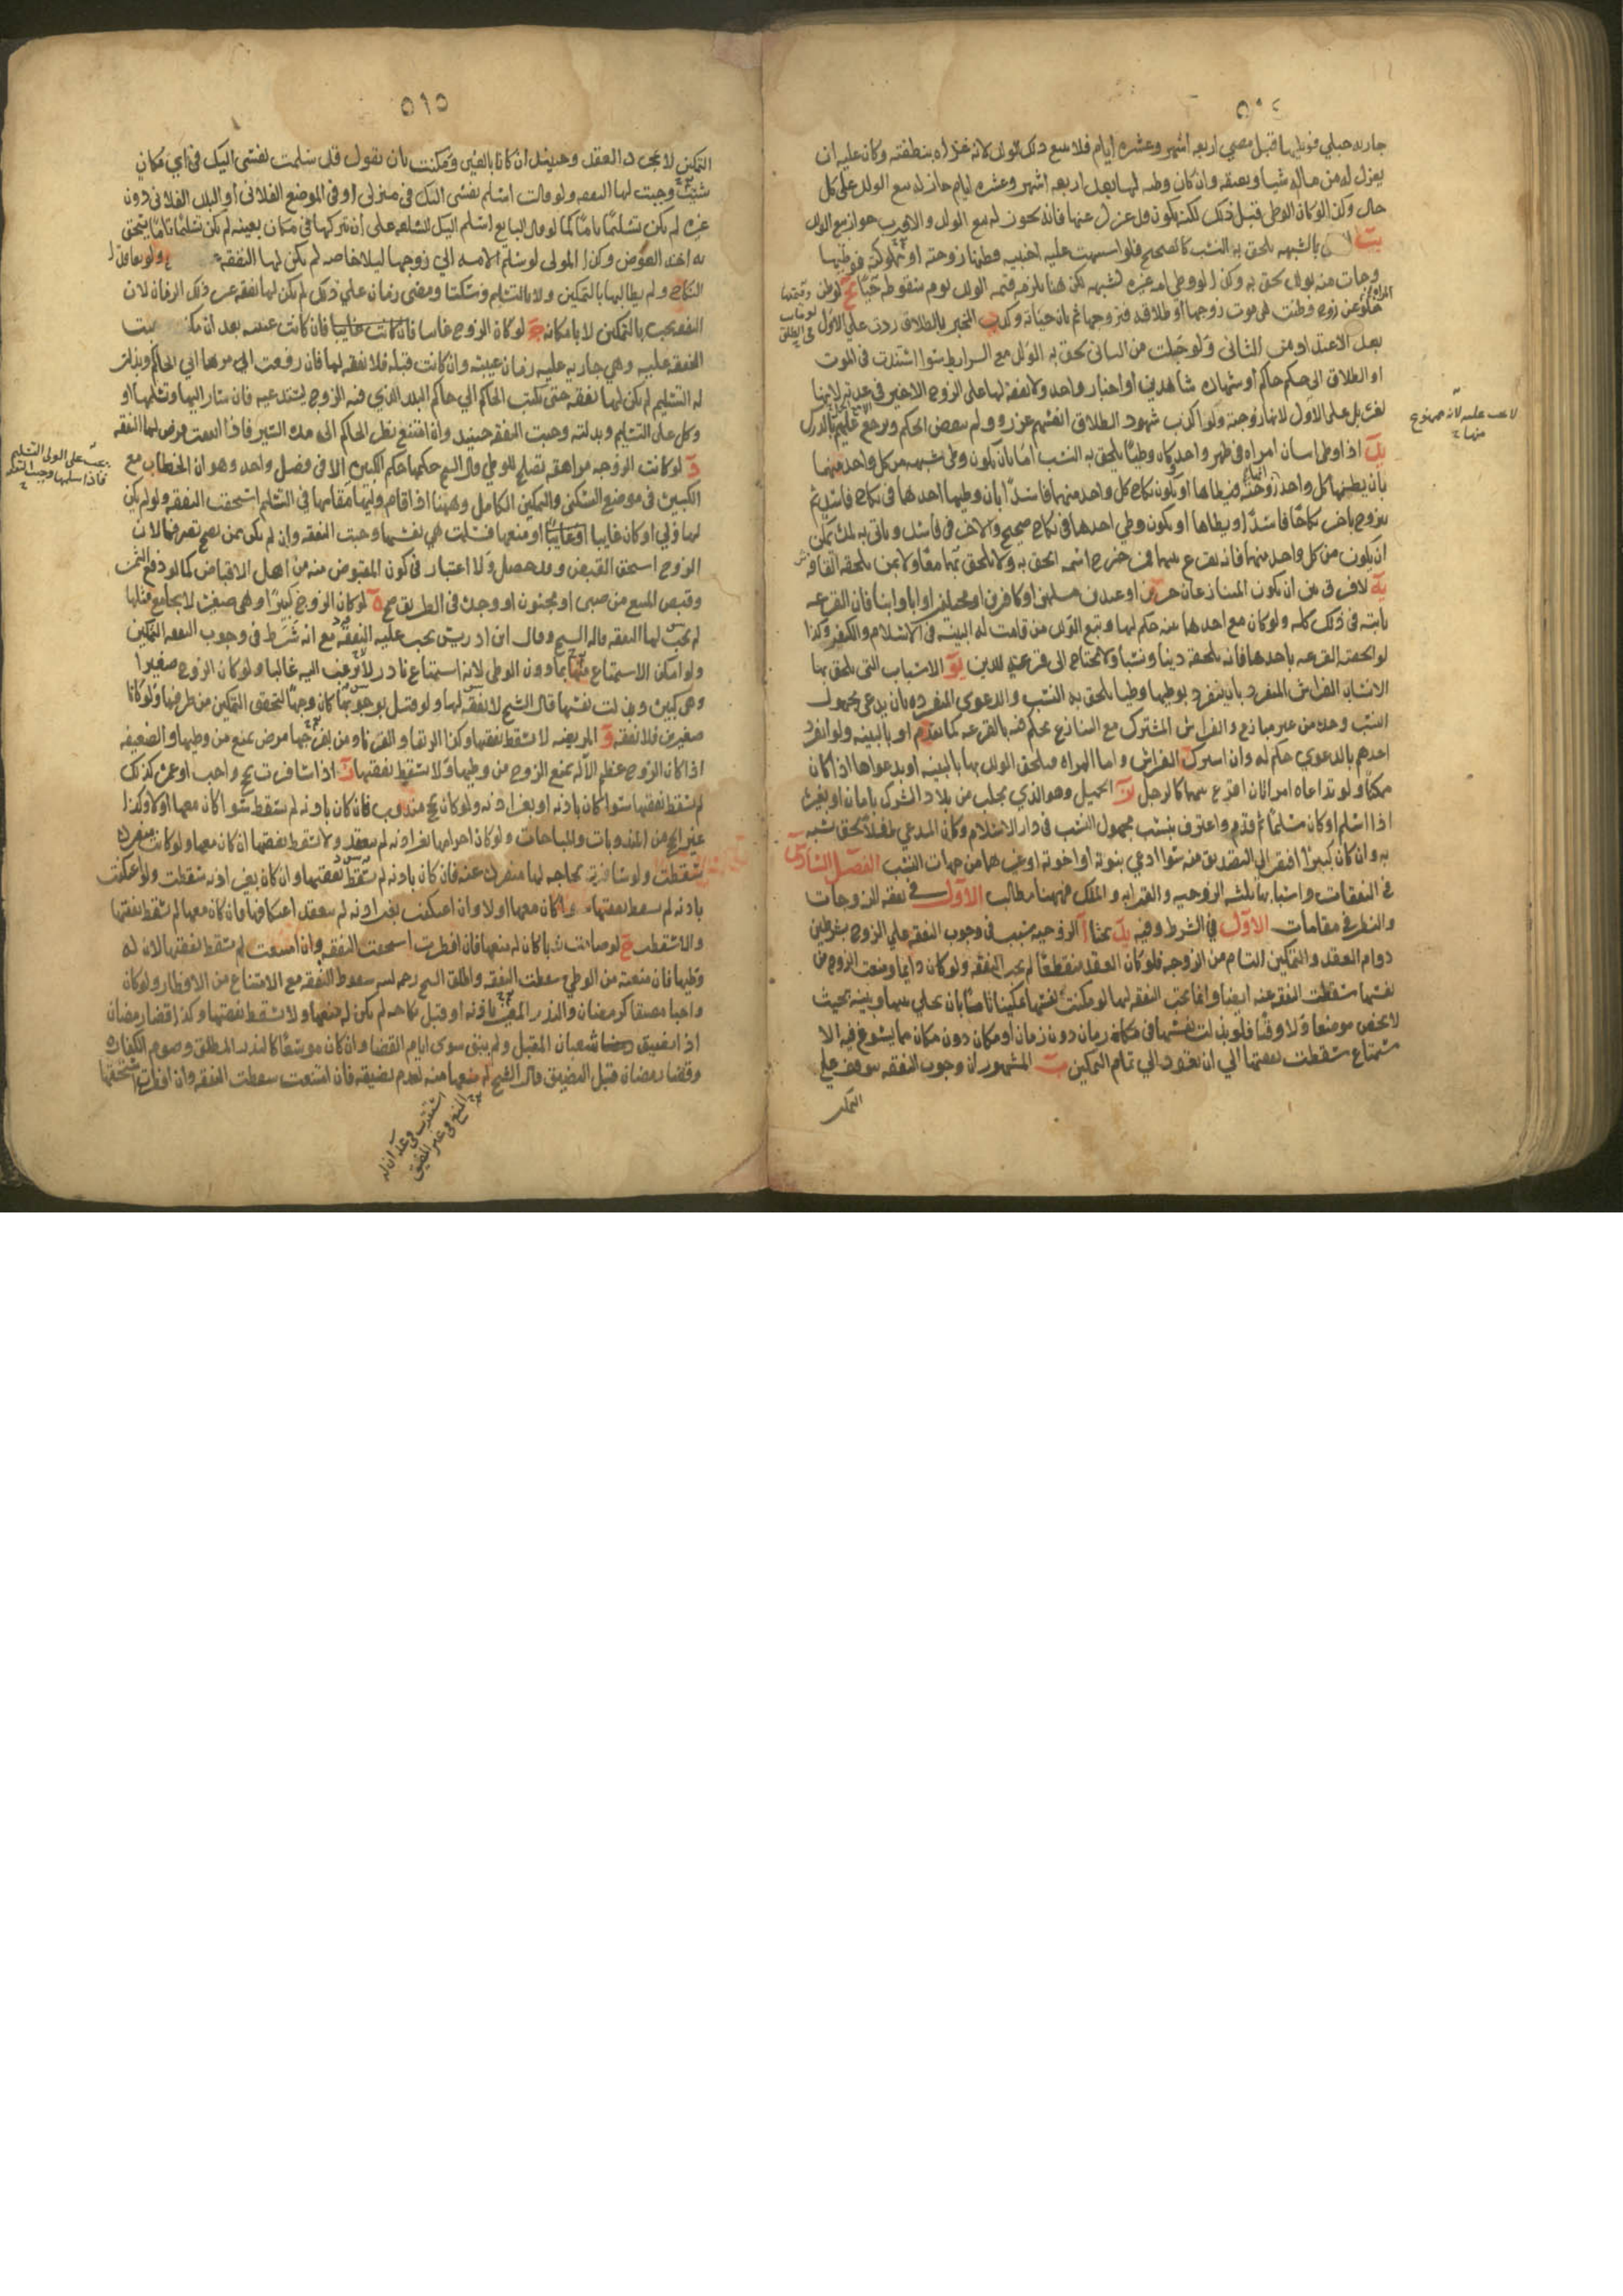 جاريه حبلي فوطيها قبل مضي اربعه اشهر وعشره ايام فلا يبيع ذلك الولد لانه غذاه بنطفته وكان عليه ان
يعزل له من ماله شيا ويعتقه وان كان وطيه لها بعد اربعه اشهر وعشره ايام جاز له بيع الولد على كل
حال وكذا لو كان الوطى قبل ذلك لكنه يكون قد عزل عنها فانه يجوز له بيع الولد والاقرب جواز بيع الولد
بالشبهه يلحق به النسب كالصحيح فلو اشتبهت عليه اجنبيه فظنها زوجته او مملوكته فوطيها
وجات منه بولد لحق به وكذا لو وطى امه غيره لشبهه لكن هنا يلزمه قيمه الولد يوم سقوطه حيا لو ظن
خلو عن زوج وظنت موت زوجها او طلاقه فتزوجها ثم بان حياته وكذب المخبر بالطلاق ردت على الاول
بعد الاعتداد من الثانى ولو حبلت من الثانى لحق به الولد مع الشرايط سوا استندت فى الموت
او الطلاق الى حكم حاكم او شهاده شاهدين او اخبار واحد ولا نفقه لها على الزوج الاخير فى عدته لانها
لغيره بل على الاول لانها زوجته ولو اكذب شهود الطلاق انفسهم عزروا ولم ينقض الحكم ويرجع عليهم بالدرك
يد اذا وطى اثنان امراه فى طهر واحد وكان وطيا يلحق به النسب اما بان يكون وطى شبهه من كل واحد منهما
بان يظنها كل واحد زوجته فيطاها او يكون نكاح كل واحد منهما فاسدا بان وطيها احدهما فى نكاح فاسد ثم
تتزوج باخر نكاحا فاسدا ويطاها او يكون وطي احدهما فى نكاح صحيح والاخر فى فاسد وتاتى به لمده يمكن
ان يكون من كل واحد منهما فانه يقرع بينهما فمن خرج اسمه الحق به ولا يلحق بهما معا ولا بمن يلحقه القافه
يه لا فرق بين ان يكون المتنازعان حرين او عبدين مسلمين او كافرين او مختلفين او ابا وابنا فان القرعه
ثابته فى ذلك كله ولو كان مع احدهما بينه حكم لها وتبع الولد من قامت له البينه فى الاسلام والكفر وكذا
لو الحقته القرعه باحدهما فانه يلحقه دينا ونسبا ولا يحتاج الى قرعه للدين يو الاسباب التى يلحق بها
الانساب الفراش المنفرد بان ينفرد بوطيها وطيا يلحق به النسب والدعوى المنفرده بان يدعى مجهول
النسب وحده من غير منازع والفراش المشترك مع التنازع يحكم فيه بالقرعه كما تقدم او بالبينه ولو انفرد
احدهم بالدعوى حكم له وان اشترك الفراش واما المراه فيلحق الولد بها بالبينه او بدعواها اذا كان
ممكنا ولو تداعاه امراتان اقرع بينهما كالرجل يز الحميل وهو الذي يجلب من بلاد الشرك بامان او بغيره
اذا اسلم او كان مسلما ثم قدم واعترف بنسب مجهول النسب فى دار الاسلام وكان المدعي طفلا لحق نسبه
به وان كان كبيرا افتقر الي التصديق منه سوا ادعي بنوته او اخوته او غيرهما من جهات النسب الفصل السادس
فى النفقات واسبابها ثلثه الزوجيه والقرابه والملك فههنا مطالب الاول فى نفقه الزوجات
والنظر فى مقامات الاول في الشرط وفيه يد بحثا ا الزوجيه سبب فى وجوب النفقه علي الزوج بشرطين
دوام العقد والتمكين التام من الزوجه فلو كان العقد منقطعا لم يجب النفقه ولو كان دايما ومنعت الزوج من
نفسها سقطت النفقه عنه ايضا وانما يجب النفقه لها لو مكنت نفسها تمكينا تاما بان تخلي بينها وبينه بحيث
لا يخص موضعا ولا وقتا فلو بذلت نفسها فى مكان زمان دون زمان او مكان دون مكان مما يسوغ فيه الا
ستمتاع سقطت نفقتها الي ان تعود الي تمام التمكين ب المشهور ان وجوب النفقه موقوف علي
التمكين
لا يجب عليه لانه ممنوع
منها
٥١٥
التمكين لا بمجرد العقد وحينئذ ان كانا بالغين ومكنت بان تقول قد سلمت نفسى اليك فى اي مكان
شيت وجبت لها النفقه ولو قالت اسلم نفسى اليك فى منزلى او فى الموضع الفلانى او البلد الفلانى دون
غيره لم يكن تسليما تاما كما لو قال البايع اسلم اليك السلعه على ان تتركها فى مكان بعينه لم يكن تسليما تاما يستحق
به اخذ العوض وكذا المولى لو سلم الامه الي زوجها ليلا خاصه لم يكن لها النفقه ولو تعاقدا
النكاح ولم يطالبها بالتمكين ولا بالتسليم وسكتا ومضى زمان علي ذلك لم يكن لها نفقه عن ذلك الزمان لان
النفقه يجب بالتمكين لا بامكانه ج لو كان الزوج غايبا فان كانت غيبته بعد ان مكنت
النفقه عليه وهي جاريه عليه زمان غيبته وان كانت قبله فلا نفقه لها فان رفعت امرها الي الحاكم وبذلت
له التسليم لم يكن لها نفقه حتى يكتب الحاكم الي حاكم البلد الذي فيه الزوج يستدعيه فان سار اليها وتسلمها او
وكل على التسليم وبذلته وجبت النفقه حينيذ وان امتنع نظر الحاكم الى مده المسير فاذا انتهت فرض لها النفقه
د لو كانت الزوجه مراهقه تصلح للوطي قال الشيخ حكمها حكم الكبيره الا فى فصل واحد وهو ان الخطاب مع
الكبيره فى موضع السكنى والتمكين الكامل وههنا اذا اقام وليها مقامها فى التسليم استحقت النفقه ولو لم يكن
لها ولي او كان غايبا او منعها فسلمت هي نفسها وجبت النفقه وان لم يكن ممن يصح تصرفها لان
الزوج استحق القبض وقد حصل ولا اعتبار فى كون المقبوض منه من اهل الاقباض كما لو دفع الثمن
وقبض المبيع من صبى او مجنون او وجده فى الطريق صح ه لو كان الزوج كبيرا وهى صغيره لا يجامع مثلها
لم يجب لها النفقه قاله الشيخ وقال ابن ادريس يجب عليه النفقه مع انه شرط فى وجوب النفقه التمكين
ولو امكن الاستمتاع منها بما دون الوطى لانه استمتاع نادر لا يرغب اليه غالبا ولو كان الزوج صغيرا
وهى كبيره وبذلت نفسها قال الشيخ لا نفقه لها ولو قيل بوجوبها كان وجها لتحقق التمكين من طرفها ولو كانا
صغيرين فلا نفقه و المريضه لا تسقط نفقتها وكذا الرتقا والقرنا ومن بفرجها مرض يمنع من وطيها والضعيفه
اذا كان الزوج عظيم الاله يمنع الزوج من وطيها ولا تسقط نفقتها ز اذا سافرت بحج واجب او عمره كذلك
لم تسقط نفقتها سوا كان باذنه او بغير اذنه ولو كان بحج مندوب فان كان باذنه لم تسقط سوا كان معها او لا وكذا
غير الحج من المندوبات والمباحات ولو كان احرامها بغير اذنه لم ينعقد ولا تسقط نفقتها ان كان معها ولو كانت منفرده
سقطت ولو سافرت لحاجه لها منفرده عنه فان كان باذنه لم تسقط نفقتها وان كان بغير اذنه سقطت ولو اعتكفت
باذنه لم تسقط نفقتها كان معها او لا وان اعتكفت بغير اذنه لم ينعقد اعتكافها فان كان معها لم تسقط نفقتها
والا سقطت ح لو صامت ندبا كان له منعها فان افطرت استحقت النفقه وان امتنعت لم تسقط نفقتها لان له
وطيها فان منعته من الوطي سقطت النفقه واطلق الشيخ رحمه الله سقوط النفقه مع الامتناع من الافطار ولو كان
واجبا مضيقا كرمضان والنذر المعين باذنه او قبل نكاحه لم يكن له منعها ولا تسقط نفقتها وكذا قضا رمضان
اذا تضيق شعبان المقبل ولم يبق سوى ايام القضا وان كان موسعا كالنذر المطلق وصوم الكفاره
وقضا رمضان قبل التضيق قال الشيخ له منعها منه لعدم تضيقه فان امتنعت سقطت النفقه وان افطرت استحقتها
يجب على الولى التسليم
فاذا سلمها وجبت النفقه